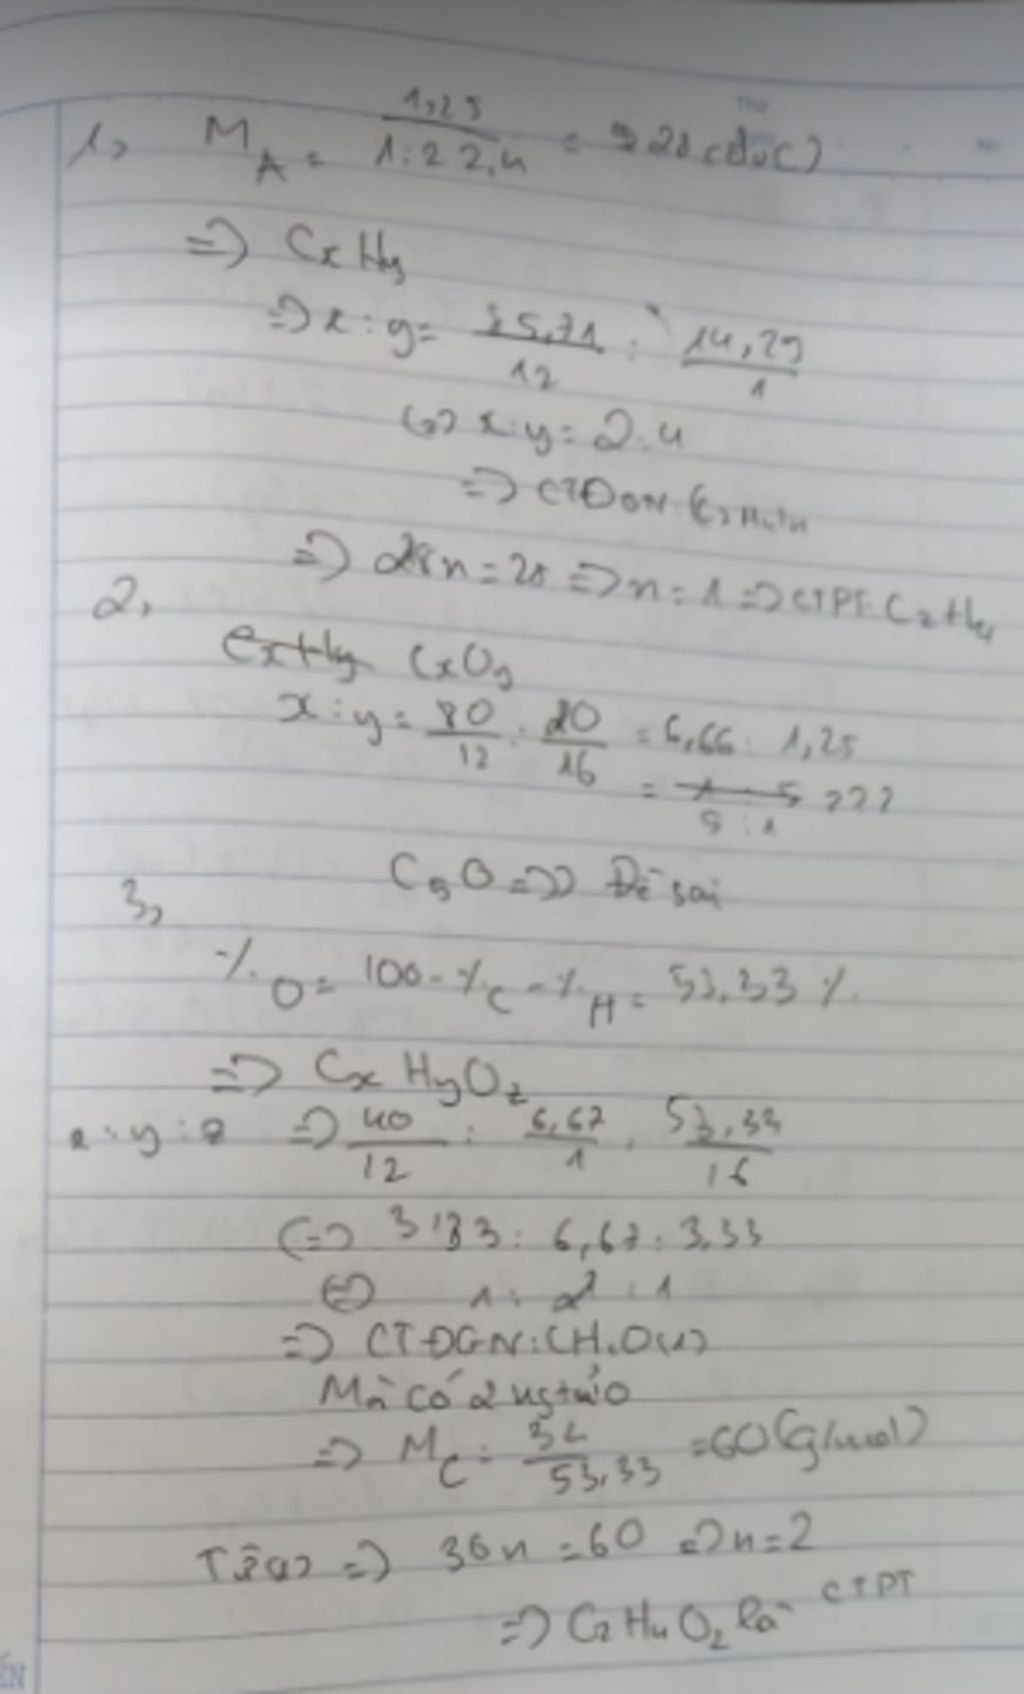 1, M_A = 1,25 / 1:22,4 = 28 (đvC)
=> CxHy
=> x:y = 85,71/12 : 14,29/1
<=> x:y = 2:4
=> CTĐGN: (C2H4)n
=> 28n = 28 => n = 1 => CTPT: C2H4
2, CxHy CxOy
x:y = 80/12 : 20/16 = 6,66 : 1,25
= 1 : 5 ???
5 : 1
C5O => Đề sai
3,
%O = 100 - %C - %H = 53,33 %.
=> CxHyOz
x:y:z => 40/12 : 6,67/1 : 53,33/16
<=> 3,33 : 6,67 : 3,33
<=> 1 : 2 : 1
=> CTĐGN: CH2O (1)
Mà có 2 ngtử O
=> M_C = 32/53,33 = 60 (g/mol)
Từ (1) => 30n = 60 => n = 2
=> C2H4O2 là CTPT
ẾN